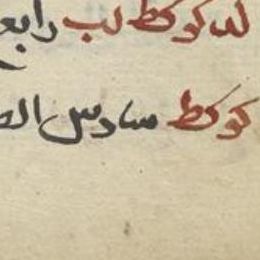 لد كو كط لب رابع
كو كط سادس